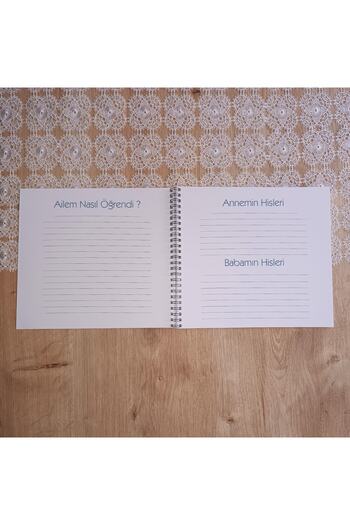 Ailem Nasıl Öğrendi ?
Annemin Hisleri
Babamın Hisleri